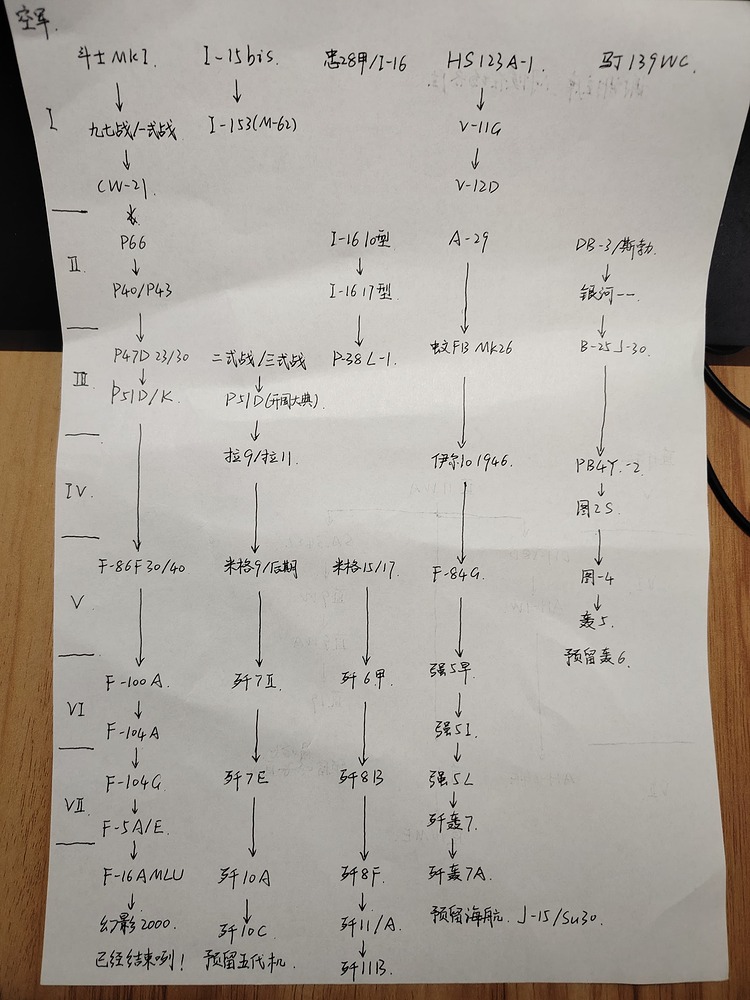 空军.
斗士MKI. I-15bis. 忠28甲/I-16 HS123A-1. 马丁139WC.
I
九七战/一式战 I-153(M-62) V-11G
CW-21 V-12D
P66 I-16 10型 A-29 DB-3/斯勃.
II
P40/P43 I-16 17型. 银河一一
P47D 23/30 二式战/三式战 P-38L-1. 蚊FB MK26 B-25J-30.
III
P51D/K. P51D(开国大典).
拉9/拉11. 伊尔10 1946. PB4Y-2
IV. 图2S.
F-86F30/40 米格9/后期 米格15/17. F-84G. 图-4
V 轰5.
预留轰6.
F-100A. 歼7II. 歼6甲. 强5早.
VI
F-104A 强5I.
F-104G 歼7E 歼8B 强5L
VII
F-5A/E. 歼轰7.
F-16AMLU 歼10A 歼8F. 歼轰7A.
幻影2000. 歼10C. 歼11/A. 预留海航. J-15/Su30.
已经结束咧! 预留五代机. 歼11B.